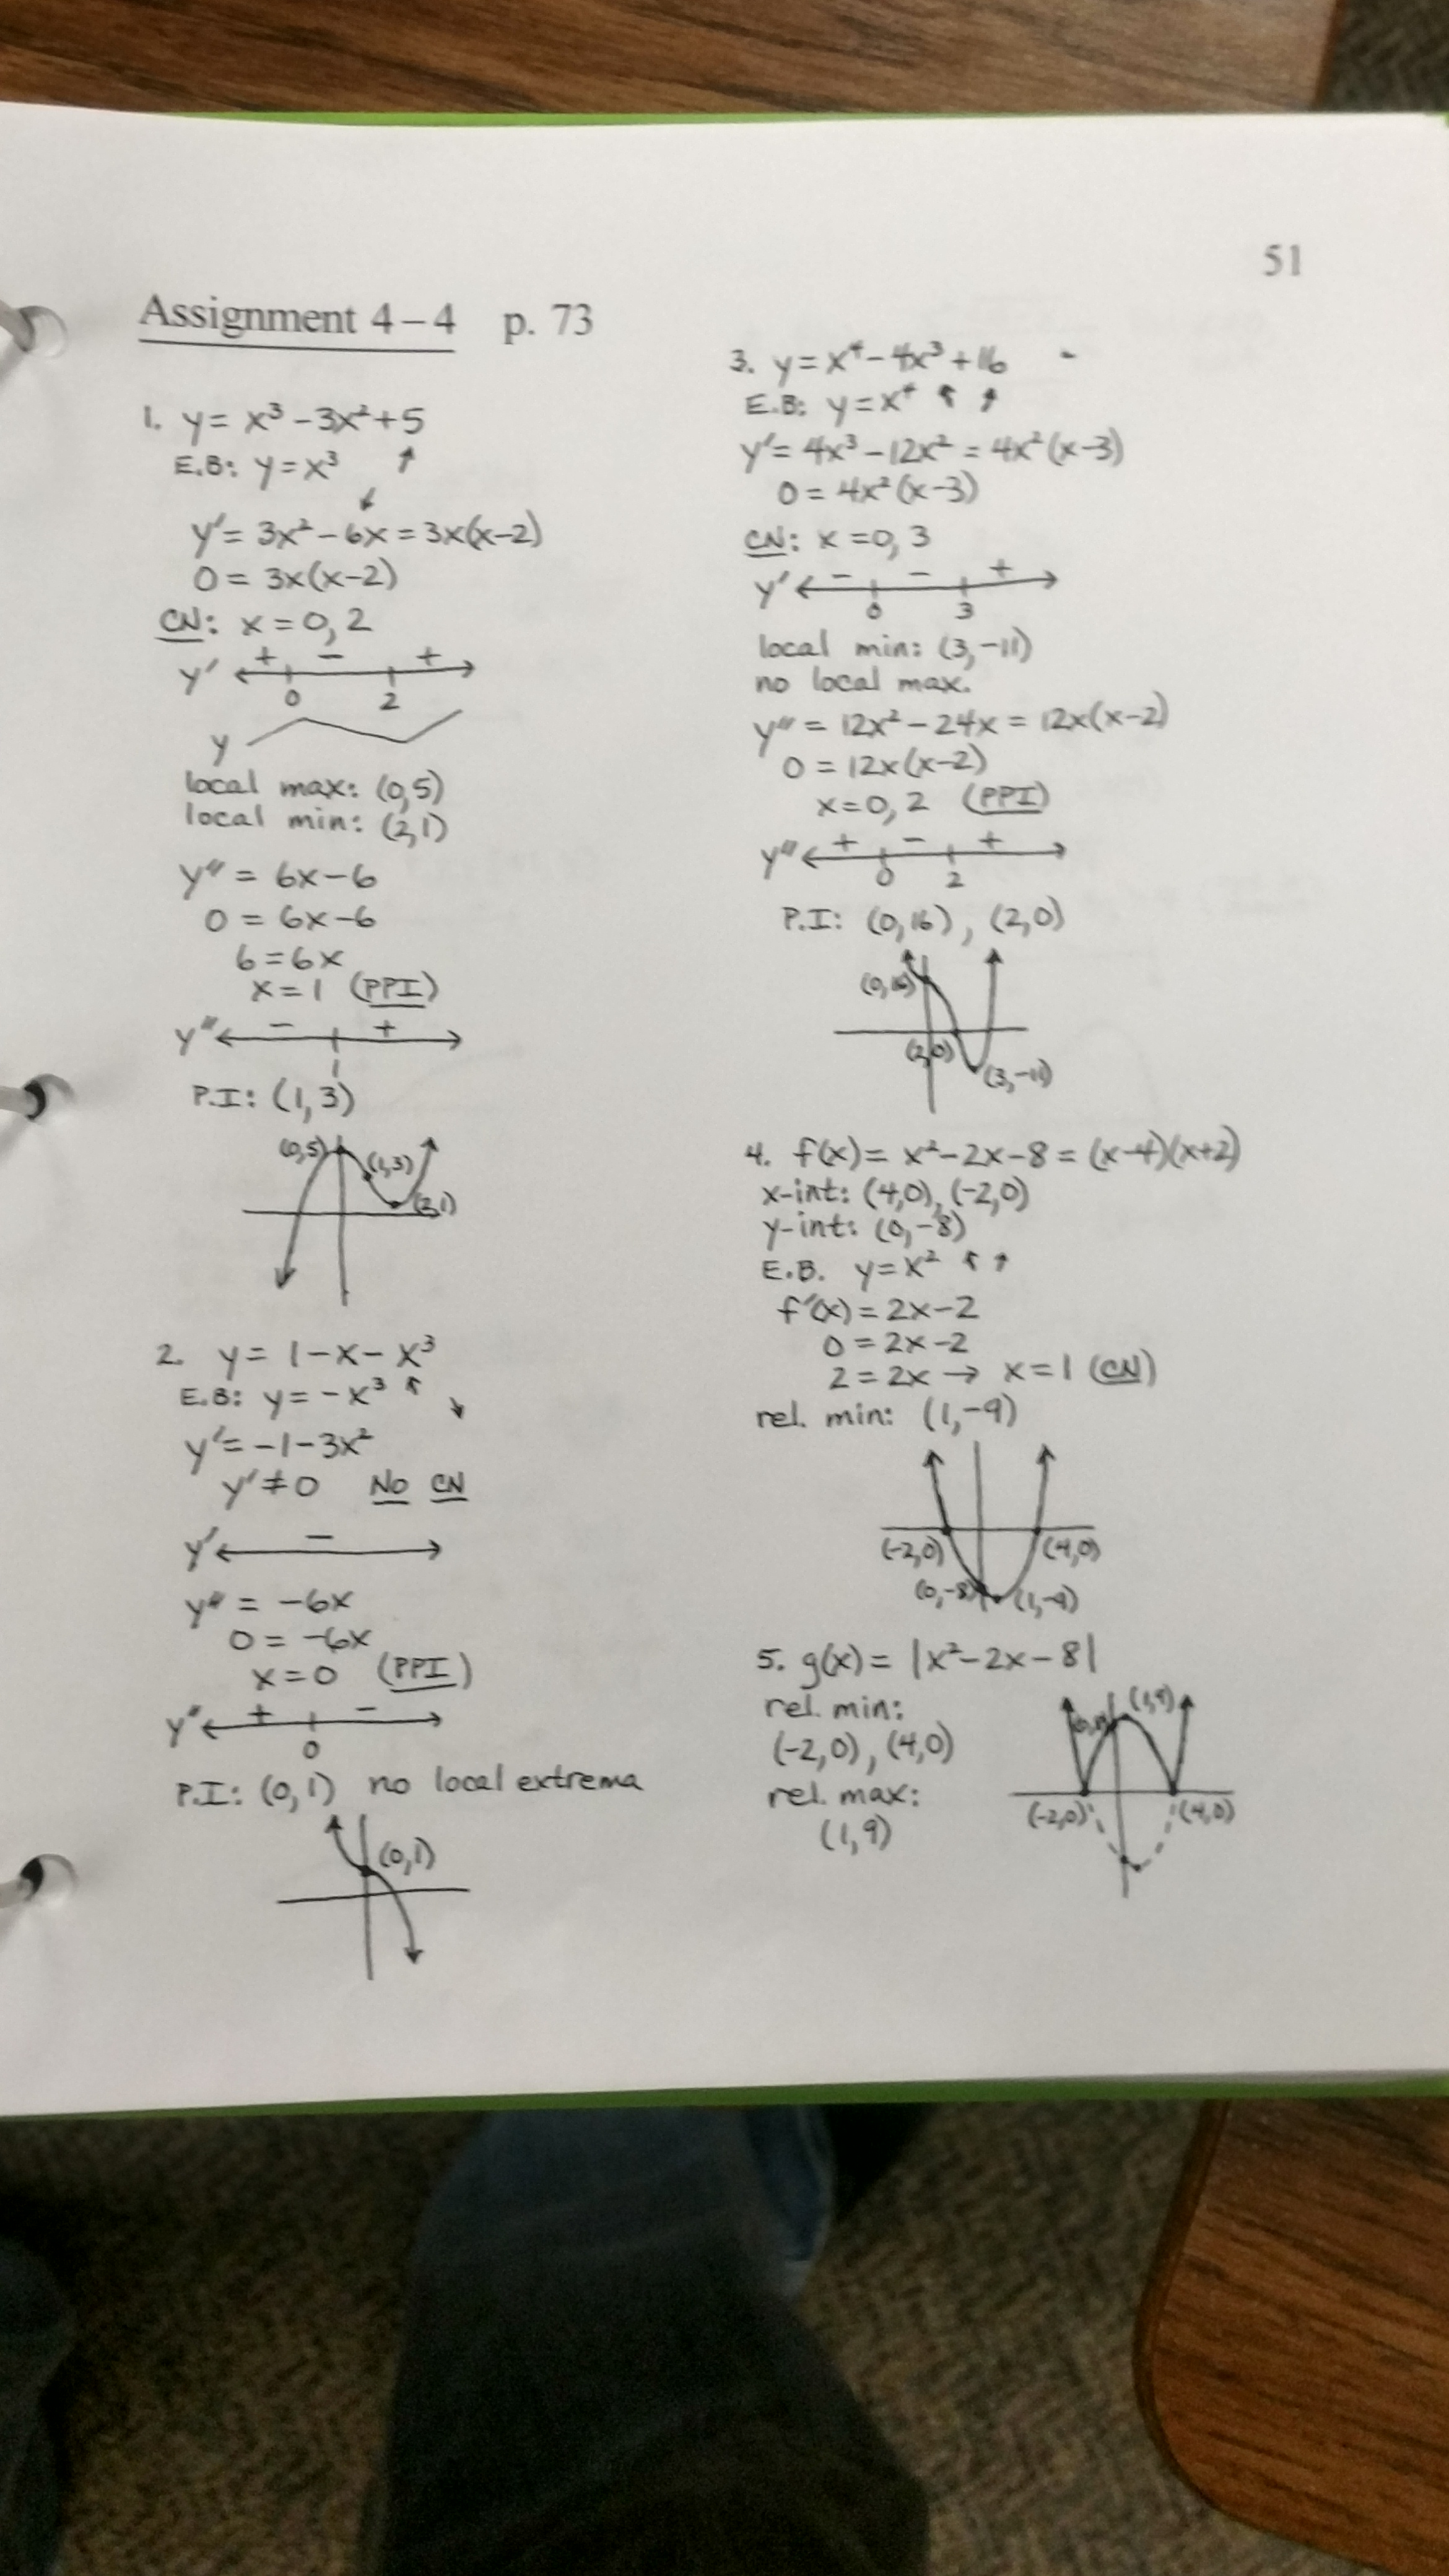 51
Assignment 4-4 p. 73
1. y = x³ - 3x² + 5
E.B: y = x³ ↑
↙
y' = 3x² - 6x = 3x(x-2)
0 = 3x(x-2)
CN: x = 0, 2
y' + - +
0 2
y
local max: (0,5)
local min: (2,1)
y" = 6x - 6
0 = 6x - 6
6 = 6x
x = 1 (PPI)
y" - +
1
P.I: (1,3)
(0,5) (1,3)
(2,1)
2. y = 1 - x - x³
E.B: y = -x³ ↖
↘
y' = -1 - 3x²
y' ≠ 0 No CN
y' -
y" = -6x
0 = -6x
x = 0 (PPI)
y" + -
0
P.I: (0,1) no local extrema
(0,1)
3. y = x⁴ - 4x³ + 16
E.B: y = x⁴ ↖ ↗
y' = 4x³ - 12x² = 4x²(x-3)
0 = 4x²(x-3)
CN: x = 0, 3
y' - - +
0 3
local min: (3,-11)
no local max.
y" = 12x² - 24x = 12x(x-2)
0 = 12x(x-2)
x = 0, 2 (PPI)
y" + - +
0 2
P.I: (0,16), (2,0)
(0,16)
(2,0)
(3,-11)
4. f(x) = x² - 2x - 8 = (x-4)(x+2)
x-int: (4,0), (-2,0)
y-int: (0,-8)
E.B. y = x² ↖ ↗
f'(x) = 2x - 2
0 = 2x - 2
2 = 2x → x = 1 (CN)
rel. min: (1,-9)
(-2,0) (4,0)
(0,-8) (1,-9)
5. g(x) = |x² - 2x - 8|
rel. min:
(-2,0), (4,0)
rel. max:
(1,9)
(1,9)
(-2,0) (4,0)